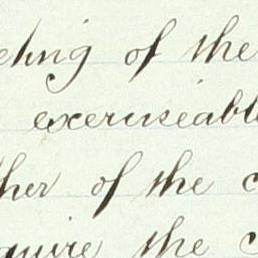 eting of the
exerciseable
ther of the c
quire the c